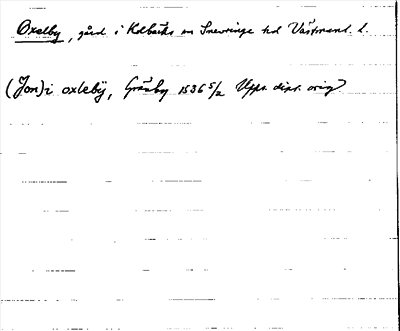 Oxelby, gård i Kolbäcks sn Snevringe hd Västmanl. l.
(Jon) i oxlebÿ, Gränby 1536 5/2 Upps. dipl. orig